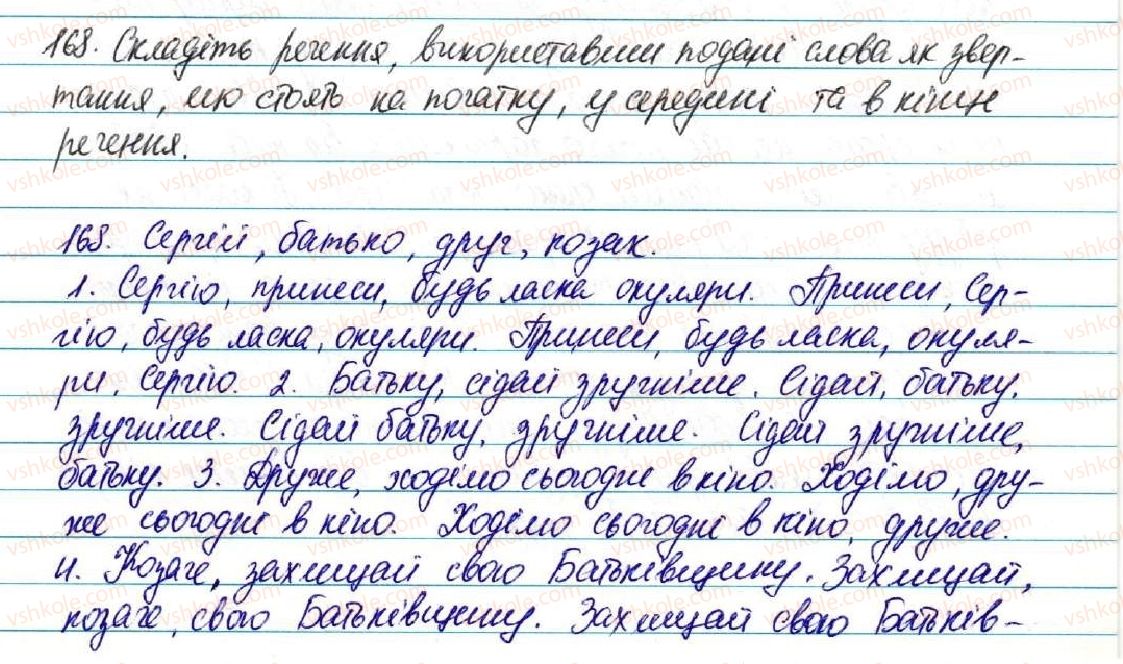 168. Складіть речення, використавши подані слова як звер-
тання, що стоять на початку, у середині та в кінці
речення.
168. Сергій, батько, друг, козак.
1. Сергію, принеси, будь ласка окуляри. Принеси, Сер-
гію, будь ласка, окуляри. Принеси, будь ласка, окуля-
ри, Сергію. 2. Батьку, сідай зручніше. Сідай, батьку,
зручніше. Сідай батьку, зручніше. Сідай зручніше,
батьку. 3. Друже, ходімо сьогодні в кіно. Ходімо, дру-
же сьогодні в кіно. Ходімо сьогодні в кіно, друже.
4. Козаче, захищай свою Батьківщину. Захищай,
козаче, свою Батьківщину. Захищай свою Батьків-
vshkole.com